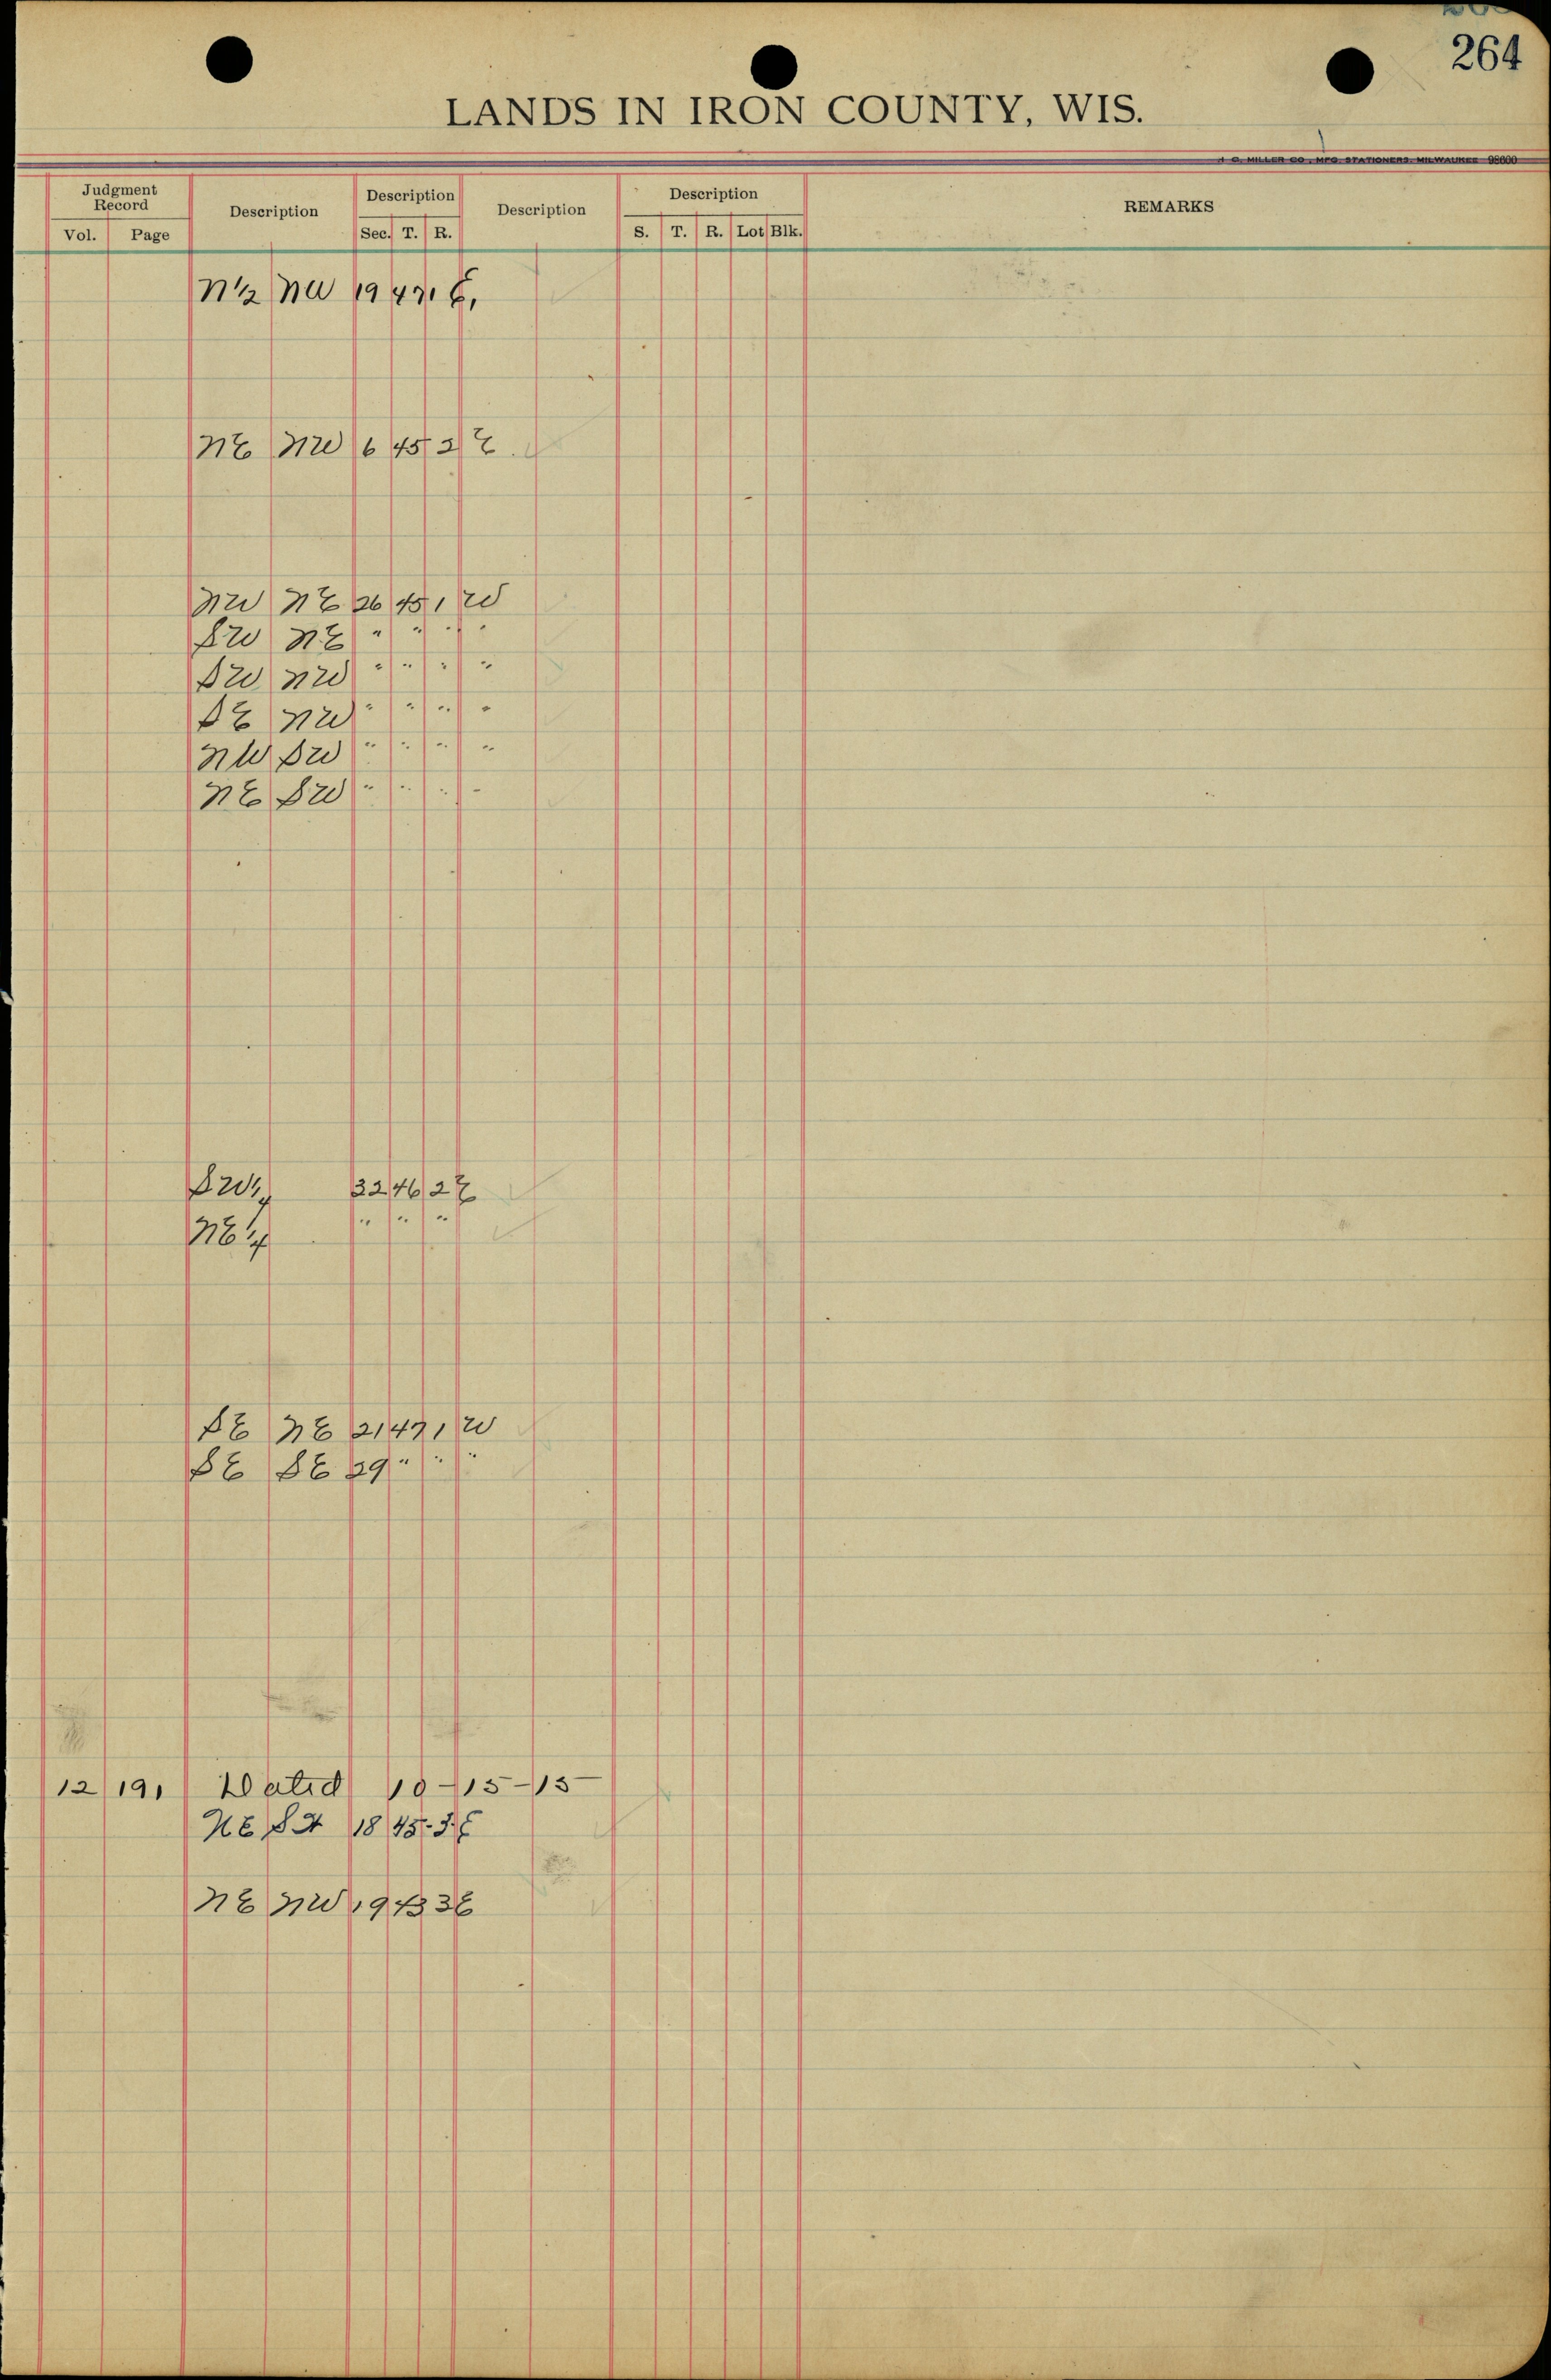 264
LANDS IN IRON COUNTY, WIS.
MILLER CO., MFG. STATIONERS, MILWAUKEE 98600
Judgment Record Description Description Description Description REMARKS
Vol. Page Sec. T. R. S. T. R. Lot Blk.
N 1/2 NW 19 47 1 E,
NE NW 6 45 2 E.
NW NE 26 45 1 W
SW NE " " " "
SW NW " " " "
SE NW " " " "
NW SW " " " "
NE SW " " " "
SW 1/4 32 46 2 E
NE 1/4 " " "
SE NE 21 47 1 W
SE SE 29 " " "
12 191 Dated 10-15-15
NE 18 45-3 E
NE NW 19 43 3 E